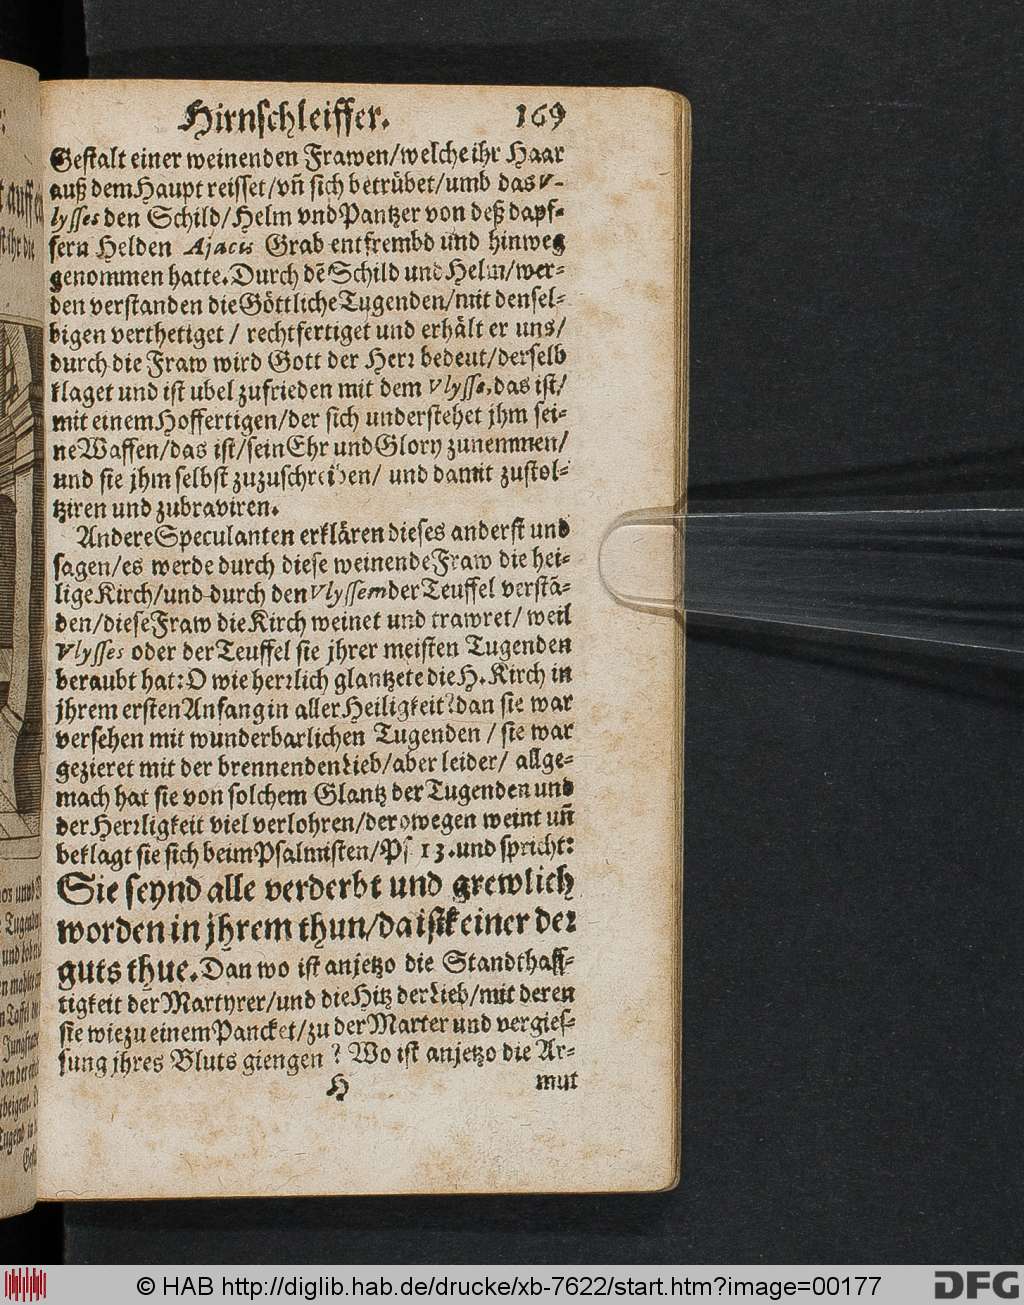 Hirnschleiffer. 169
Gestalt einer weinenden Frawen/welche ihr Haar
auß dem Haupt reisset/vñ sich betrübet/umb das V-
lysses den Schild/Helm vnd Pantzer von deß dapf-
fern Helden Ajacis Grab entfrembd und hinweg
genommen hatte. Durch dē Schild und Helm/wer-
den verstanden die Göttliche Tugenden/mit densel-
bigen verthetiget / rechtfertiget und erhält er uns/
durch die Fraw wird Gott der Herr bedeut/derselb
klaget und ist ubel zufrieden mit dem Vlysse, das ist/
mit einem Hoffertigen/der sich understehet jhm sei-
ne Waffen/das ist/sein Ehr und Glory zunemmen/
und sie jhm selbst zuzuschreiben/ und damit zustol-
tziren und zubraviren.
Andere Speculanten erklären dieses anderst und
sagen/es werde durch diese weinende Fraw die hei-
lige Kirch/und durch den Vlyssem der Teuffel verstā-
den/diese Fraw die Kirch weinet und trawret/ weil
Vlysses oder der Teuffel sie jhrer meisten Tugenden
beraubt hat: O wie herrlich glantzete die H. Kirch in
jhrem ersten Anfang in aller Heiligkeit? dan sie war
versehen mit wunderbarlichen Tugenden / sie war
gezieret mit der brennenden Lieb/aber leider/ allge-
mach hat sie von solchem Glantz der Tugenden und
der Herrligkeit viel verlohren/derowegen weint uñ
beklagt sie sich beim Psalmisten/Ps 13. und spricht:
Sie seynd alle verderbt und grewlich
worden in jhrem thun/da ist keiner der
guts thue. Dan wo ist anjetzo die Standthaff-
tigkeit der Martyrer/und die Hitz der Lieb/mit deren
sie wie zu einem Pancket/zu der Marter und vergies-
sung jhres Bluts giengen? Wo ist anjetzo die Ar-
H mut
© HAB http://diglib.hab.de/drucke/xb-7622/start.htm?image=00177
DFG